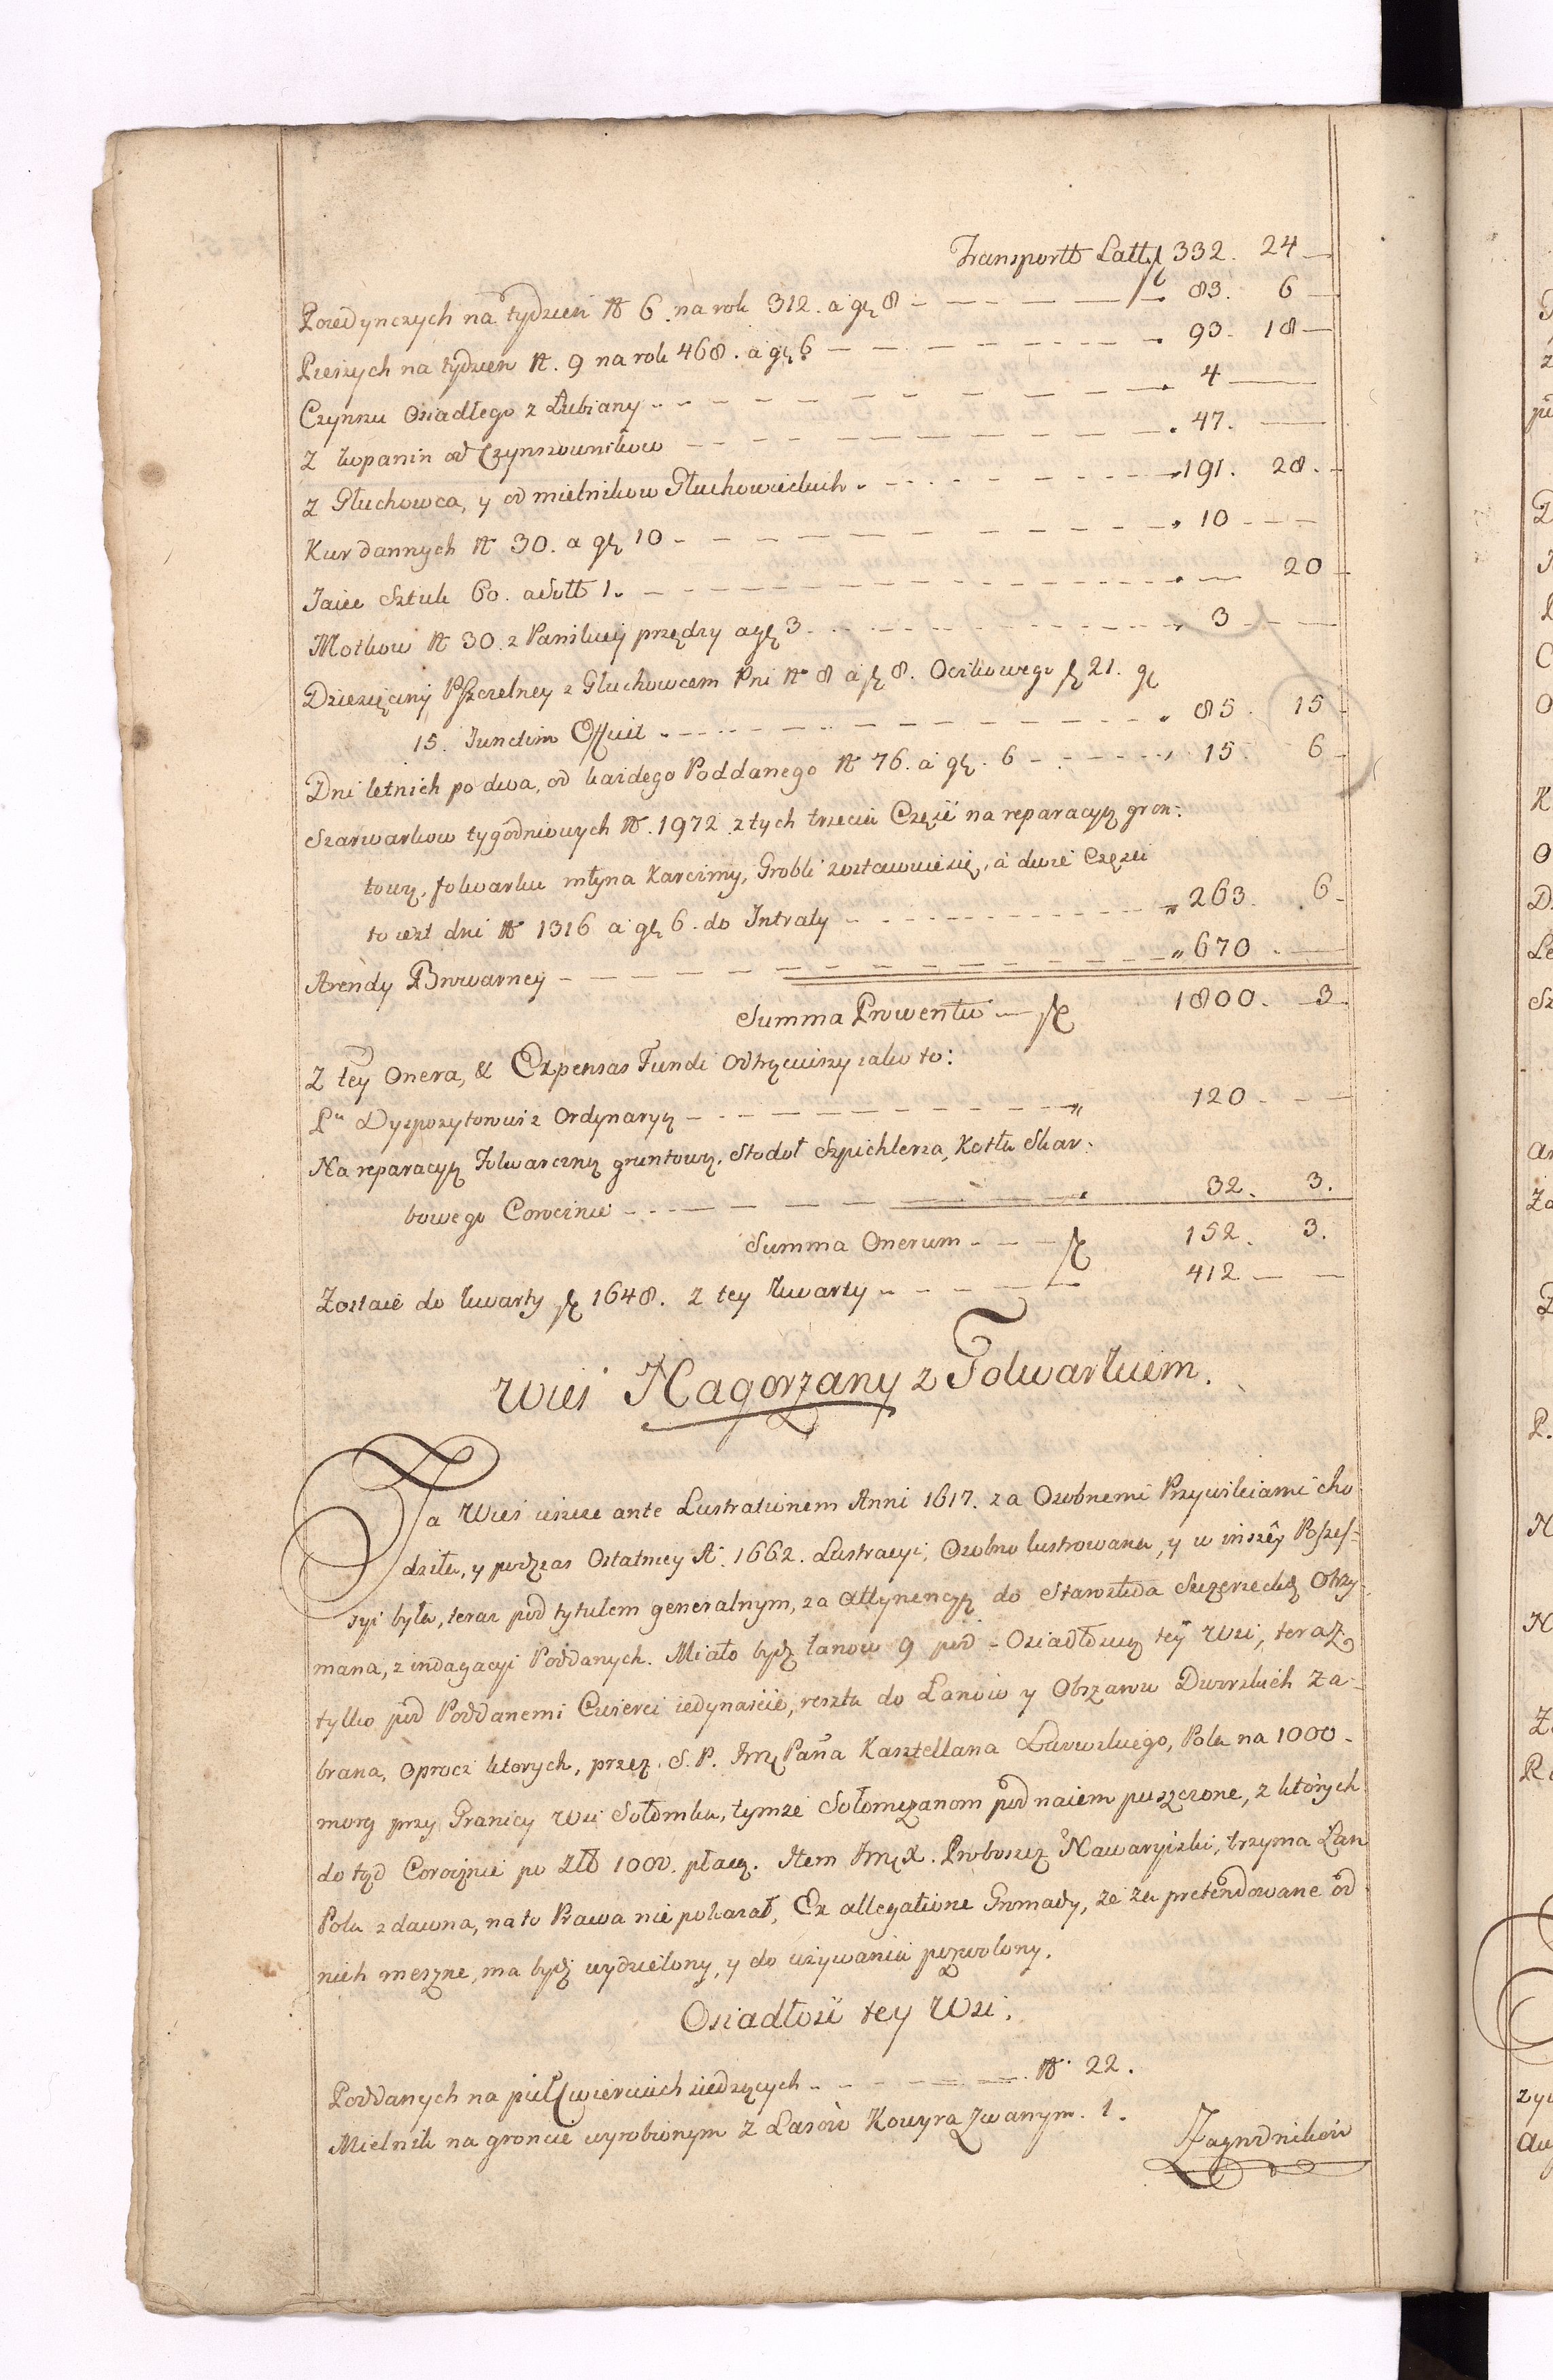 Transportt Latt. fl 332. 24 —
Poiedynczych na tydzień N 6. na rok 312. a gr 8 — — — — fl 83. 6 —
Pieszych na tydzień N. 9 na rok 468. a gr 6 — — — — 93. 18 —
Czynszu Osiadłego z Łubiany — — — — 4 —
Z kopanin od Czynszownikow — — — — 47. —
z Głuchowca, y od mielnikow Głuchowieckich — — — — 191. 28. —
Kur dannych N 30. a gr 10 — — — — 10 — —
Jaiec Sztuk 60. a Sott 1. — — — — 20 —
Motkow N 30. z Panskiey przędzy a gr 3 — — — — 3 — —
Dziesięciny Pszczelney z Głuchowcem Pni N 8 a fl 8. Oczkowego fl 21. gr
15. Junctim Efficit — — — — 85. 15 —
Dni letnich po dwa, od każdego Poddanego N 76. a gr. 6 — — — — 15. 6 —
Szarwarkow tygodniowych N. 1972 z tych trzecia Część na reparacyą gron:
tową, folwarku młyna Karczmy, Grobli zostawuie się, a dwie Części
to iest dni N 1316 a gr 6. do Intraty — — — — „ 263. 6 —
Arendy Browarney — — — — „ 670. —
Summa Prowentu — fl 1800. 3.
Z tey Onera, & Expensas Fundi Odtrąciwszy iako to:
Pu Dyspozytorowi z Ordynaryą — — — — „ 120 — —
Na reparacyą Folwarczną gruntową, Stodoł Szpichlerza, Kotła Skar:
bowego Corocznie — — — — 32. 3.
Summa Onerum — — — fl 152. 3.
Zostaie do kwarty fl 1648. z tey kwarty — — — — 412 — —
Wieś Nagorzany z Folwarkiem.
Ta Wieś ieszcze ante Lustrationem Anni 1617. za Osobnemi Przywileiami cho
dziła, y podczas Ostatniey A. 1662. Lustracyi, Osobno lustrowana, y w inszey Posses-
syi była, teraz pod tytułem generalnym, za Attynencyą do Starostwa Szczerzeckie Otrzy-
mana, z indagacyi Poddanych. Miało bydź łanow 9 pod Osiadłością tey Wsi, teraz
tylko pod Poddanemi Cwierci iedynaście, reszta do Łanow y Obszaru Dworskich za-
brana, oprocz ktorych, przez S. P. Jmć Pana Kasztellana Lwowskiego, Pola na 1000
morg przy Granicy Wsi Sołomka, tymże Sołomczanom pod naiem puszczone, z których
do tąd Corocznie po złł 1000. płacą. Item Jmć X. Proboszcz Nawaryiski, trzyma Łan
Pola z dawna, na to Prawa nie pokazał, Ex allegatione Gromady, że za pretendowane od
nich meszne, ma bydź wydzielony, y do używania pozwolony.
Osiadłość tey Wsi.
Poddanych na puł Cwierciach siedzących — — — — N 22.
Mielnik na gruncie wyrobionym z Lasów Kowyra Zwanym. 1.
Zagrodników